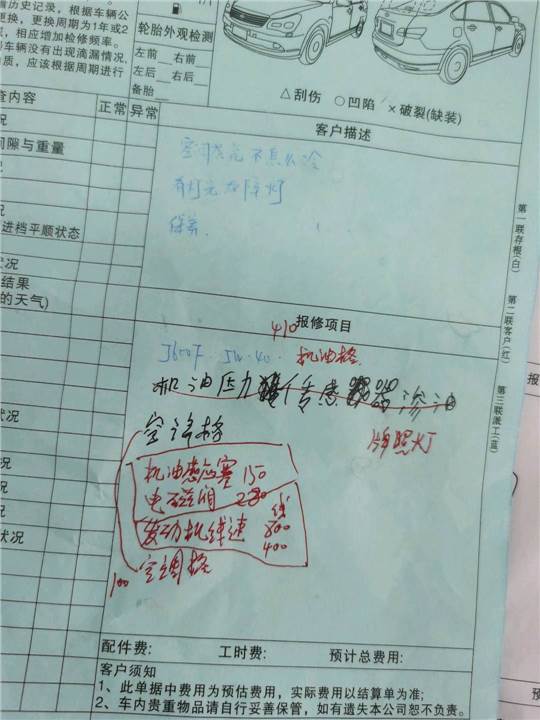 历史记录，根据车辆公
更换，更换周期为1年或2
，相应增加检修频率。
车辆没有出现滴漏情况，
质，应该根据周期进行
轮胎外观检测
左前 右前
左后 右后
备胎
△刮伤 ○凹陷 ×破裂(缺装)
查内容
正常
异常
客户描述
况
间隙与重量
况
进档平顺状态
状况
结果
的天气)
状况
况
况
状况
空调 不怎么冷
故障灯
保养
第一联存根(白)
第二联客户(红)
第三联派工(蓝)
报修项目
410
5W-40
机油格
机油压力 感 器渗油
牌照灯
空调格
机油感应塞 150
电磁阀 280
线
发动机线速 800
400
100 空调格
配件费: 工时费: 预计总费用:
客户须知
1、此单据中费用为预估费用，实际费用以结算单为准;
2、车内贵重物品请自行妥善保管，如有遗失本公司恕不负责。